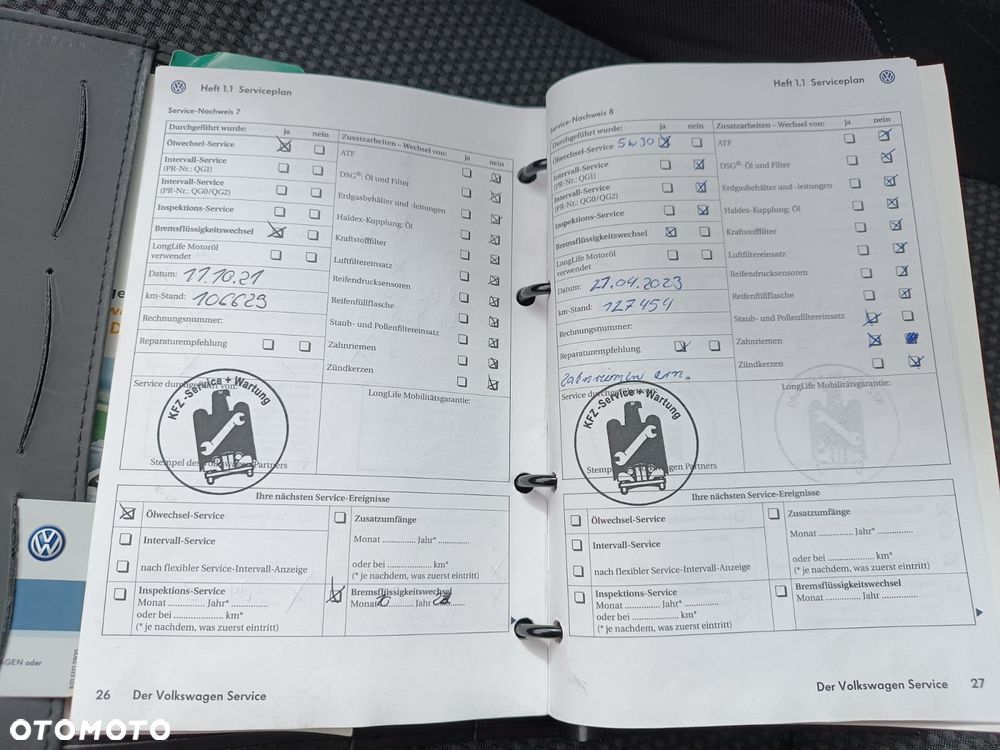 Heft 1.1 Serviceplan
Service-Nachweis 7
Durchgeführt wurde: ja nein
Ölwechsel-Service
Intervall-Service
(PR-Nr.: QG1)
Intervall-Service
(PR-Nr.: QG0/QG2)
Inspektions-Service
Bremsflüssigkeitswechsel
LongLife Motoröl
verwendet
Datum: 11.10.21
km-Stand: 106629
Rechnungsnummer:
Reparaturempfehlung
Zusatzarbeiten – Wechsel von: ja nein
ATF
DSG®: Öl und Filter
Erdgasbehälter und -leitungen
Haldex-Kupplung: Öl
Kraftstofffilter
Luftfiltereinsatz
Reifendrucksensoren
Reifenfüllflasche
Staub- und Pollenfiltereinsatz
Zahnriemen
Zündkerzen
Service durchgeführt von:
KFZ-Service + Wartung
Stempel des Volkswagen Partners
LongLife Mobilitätsgarantie:
Ihre nächsten Service-Ereignisse
Ölwechsel-Service
Intervall-Service
nach flexibler Service-Intervall-Anzeige
Inspektions-Service
Monat ............ Jahr* ............
oder bei ................ km*
(* je nachdem, was zuerst eintritt)
Zusatzumfänge
Monat ............ Jahr* ............
oder bei ................ km*
(* je nachdem, was zuerst eintritt)
Bremsflüssigkeitswechsel
Monat 10 Jahr
26 Der Volkswagen Service
Heft 1.1 Serviceplan
Service-Nachweis 8
Durchgeführt wurde: ja nein
Ölwechsel-Service 5W30
Intervall-Service
(PR-Nr.: QG1)
Intervall-Service
(PR-Nr.: QG0/QG2)
Inspektions-Service
Bremsflüssigkeitswechsel
LongLife Motoröl
verwendet
Datum: 27.04.2023
km-Stand: 127454
Rechnungsnummer:
Reparaturempfehlung
Zahnriemen
Zusatzarbeiten – Wechsel von: ja nein
ATF
DSG®: Öl und Filter
Erdgasbehälter und -leitungen
Haldex-Kupplung: Öl
Kraftstofffilter
Luftfiltereinsatz
Reifendrucksensoren
Reifenfüllflasche
Staub- und Pollenfiltereinsatz
Zahnriemen
Zündkerzen
Service durchgeführt von:
KFZ-Service + Wartung
LongLife Mobilitätsgarantie:
Ihre nächsten Service-Ereignisse
Ölwechsel-Service
Intervall-Service
nach flexibler Service-Intervall-Anzeige
Inspektions-Service
Monat ............ Jahr* ............
oder bei ................ km*
(* je nachdem, was zuerst eintritt)
Zusatzumfänge
Monat ............ Jahr* ............
oder bei ................ km*
(* je nachdem, was zuerst eintritt)
Bremsflüssigkeitswechsel
Monat ............ Jahr* ............
Der Volkswagen Service 27
GEN oder
OTOMOTO